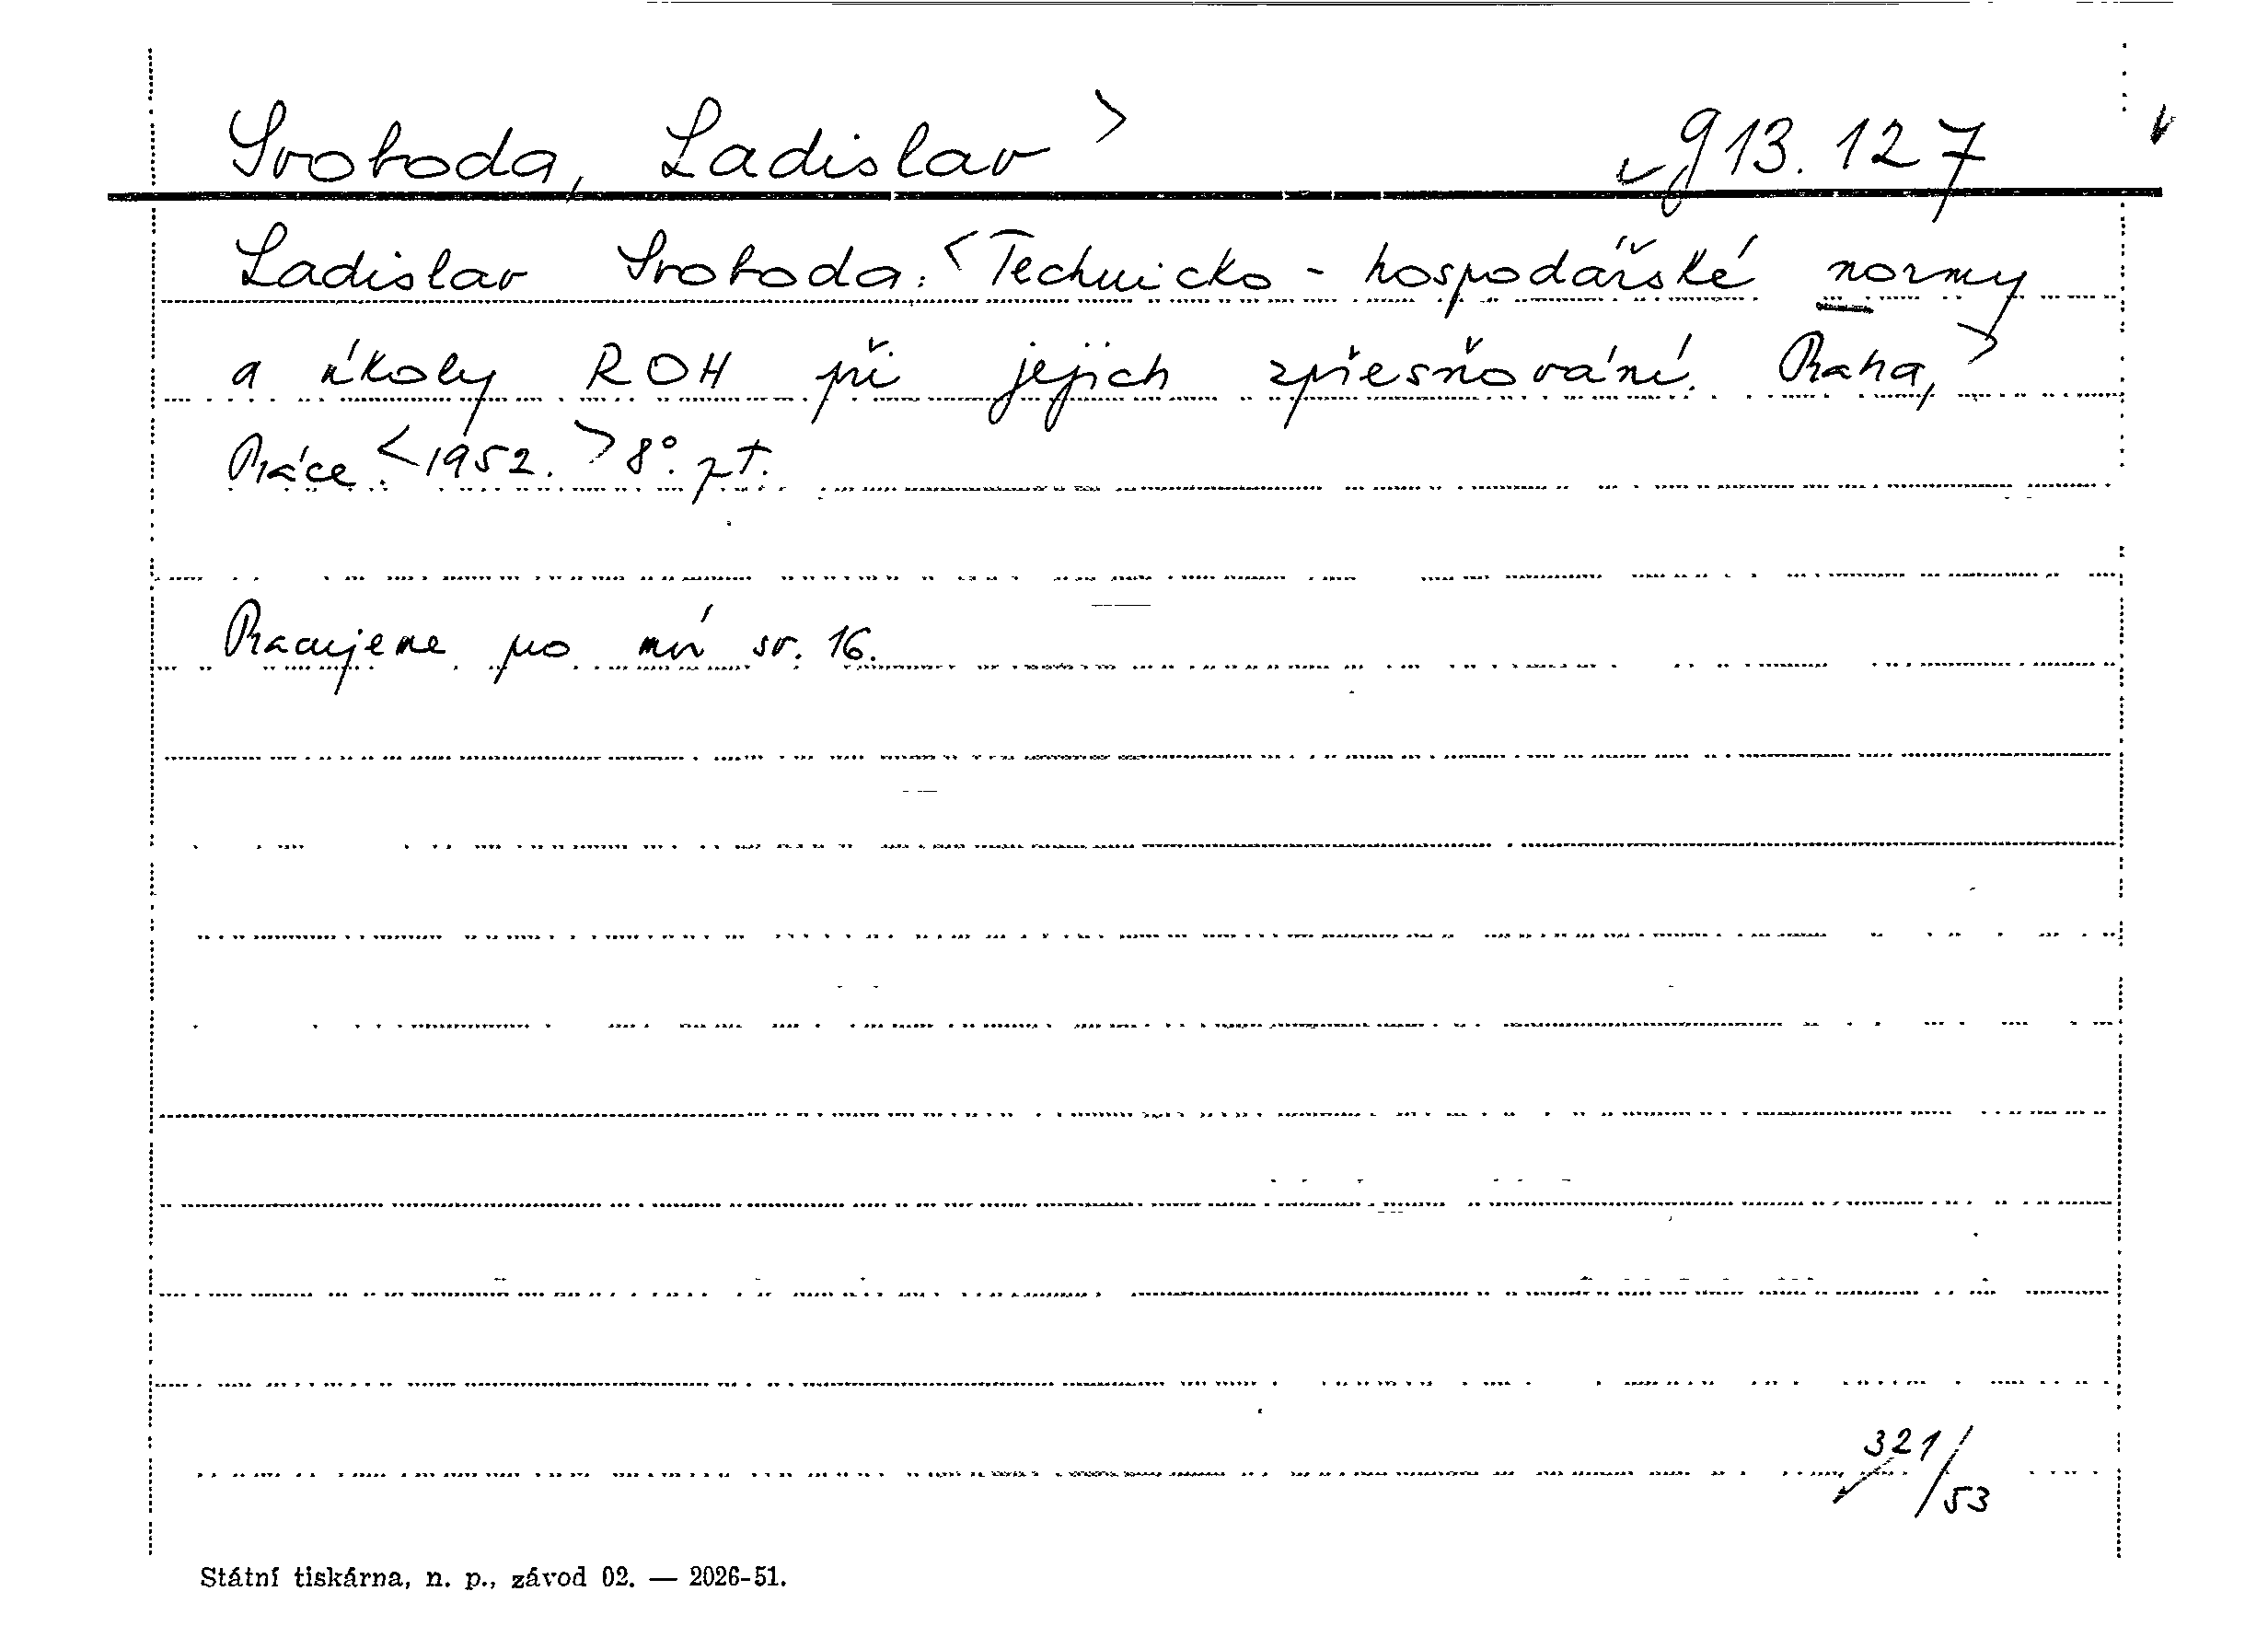 Svoboda, Ladislav > g 13.127
Ladislav Svoboda: <Technicko - hospodářské normy
a úkoly ROH při jejich zpřesňování. Praha, >
Práce. <1952. > 8°. pt.
Pracujeme pro mír sv. 16.
321/53
Státní tiskárna, n. p., závod 02. — 2026-51.